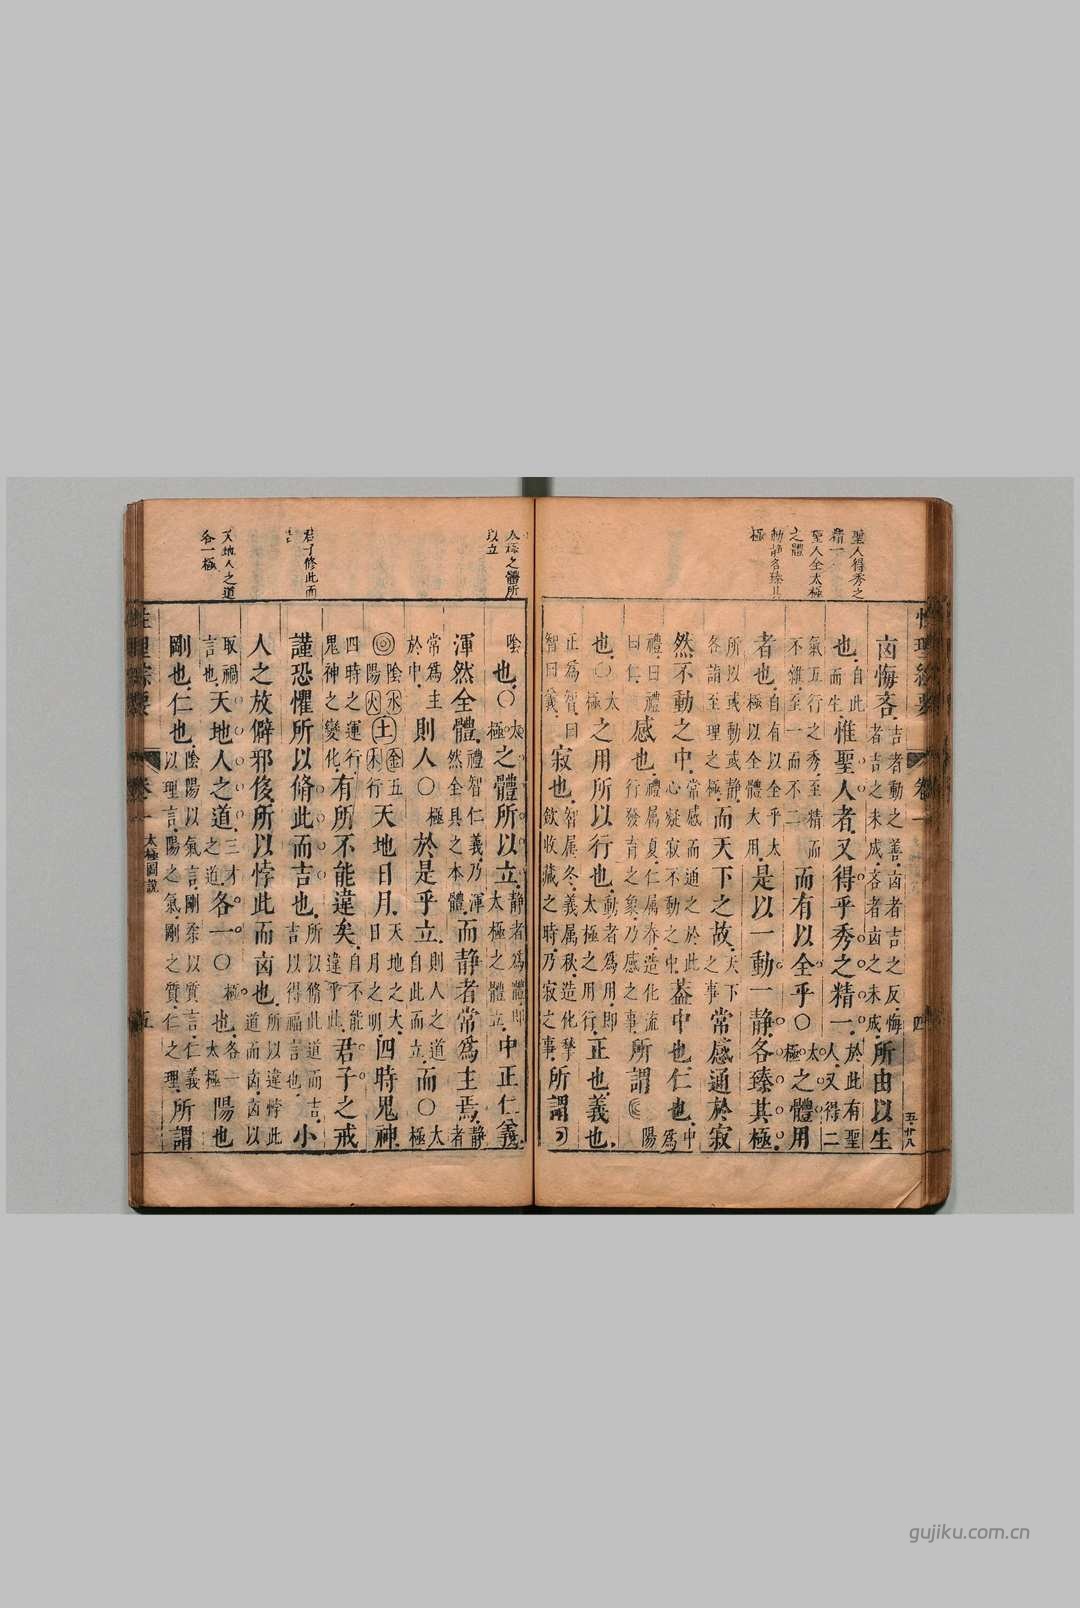 聖人得秀之
精一
聖人全太極
之體
動靜各臻其
極
凶悔吝吉者動之善凶者吉之反悔者吉之未成吝者凶之未成所由以生
也自此而生惟聖人者又得乎秀之精一於此有聖人又得二
氣五行之秀至精而不雜至一而不二而有以全乎〇太極之體用
者也自有以全乎太極以全體大用是以一動一靜各臻其極
所以或動或靜各詣至理之極而天下之故天下之事常感通於寂
然不動之中常感而通之於此心寂不動之中蓋中也仁也中為
禮曰禮曰仁感也禮屬夏仁屬春造化流行發育之象乃感之事所謂陽
也〇太極之用所以行也動者為用即太極之用行正也義也
正為智曰智曰義寂也智属冬義属秋造化揫斂收藏之時乃寂之事所謂
四
五廿八
人極之體所
以立
君子修此而
吉
天地人之道
各一極
陰也〇太極之體所以立靜者為體即太極之體立中正仁義
渾然全體禮智仁義乃渾然全具之本體而靜者常爲主焉靜者
常爲主於中則人〇極於是乎立則人之道自此而立而〇太極
◎陰水陽火土金木五行天地日月天地之大日月之明四時鬼神
四時之運行鬼神之變化有所不能違矣自不能違乎此君子之戒
謹恐懼所以脩此而吉也所以脩此道而吉吉以得福言也小
人之放僻邪侈所以悖此而凶也所以違悖此道而凶凶以
取禍言也天地人之道三才之道各一〇極也各一太極陽也
剛也仁也陰陽以氣言剛柔以質言仁義以理言陽之氣剛之質仁之理所謂
性理綜要
卷一
太極圖說
五
gujiku.com.cn